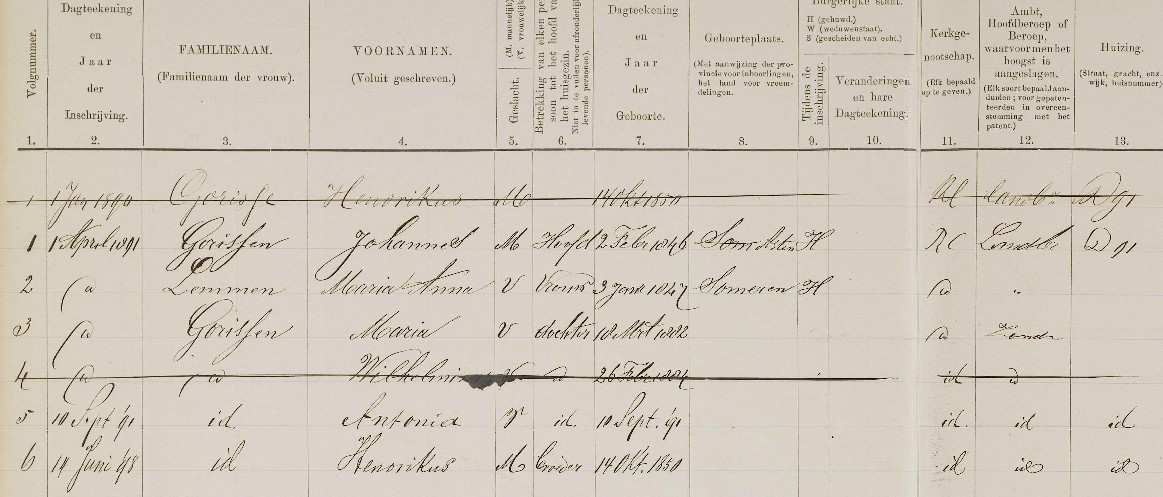 Volgnummer.
1.
Dagteekening
en
Jaar
der
Inschrijving.
2.
FAMILIENAAM.
(Familienaam der vrouw).
3.
VOORNAMEN.
(Voluit geschreven.)
4.
Geslacht.
(M. mannelijk)
(V. vrouwelijk)
5.
Betrekking van elken per-
soon tot het hoofd van
het huisgezin.
6.
Dagteekening
en
Jaar
der
Geboorte.
7.
Geboorteplaats.
(Met aanwijzing der pro-
vincie voor inboorlingen,
het land voor vreem-
delingen.
8.
Burgerlijke staat.
H (gehuwd.)
W (weduwenstaat).
S (gescheiden van echt.)
Tijdens de
inschrijving.
9.
Veranderingen
en hare
Dagteekening.
10.
Kerkge-
nootschap.
(Elk bepaald
op te geven.)
11.
Ambt,
Hoofdberoep of
Beroep,
waarvoor men het
hoogst is
aangeslagen.
(Elk soort bepaald aan-
duiden; voor gepaten-
teerden in overeen-
stemming met het
patent.)
12.
Huizing.
(Straat, gracht, enz.
wijk, huisnummer)
13.
1 1 Jan 1890 Gorisse Hendrikus M 14 Okt 1850 RC Landb. D 91
1 1 April 1891 Gorissen Johannes M Hoofd 2 Febr 1846 Som Asten H RC Landbr D 91
2 id Lemmen Maria Anna V Vrouw 3 Jan 1847 Someren H id "
3 id Gorissen Maria V dochter 18 Mrt 1882 id Zonder
4 id id Wilhelmina V id 26 Febr 1884 id id
5 10 Sept '91 id. Antonia V id. 10 Sept. '91 id. id id
6 14 Juni '98 id Henrikus M broeder 14 Okt. 1850 id id id